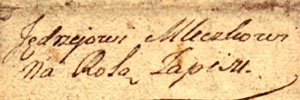 Jędrzejowi Mleczkowi
Na Rolą Zapis.